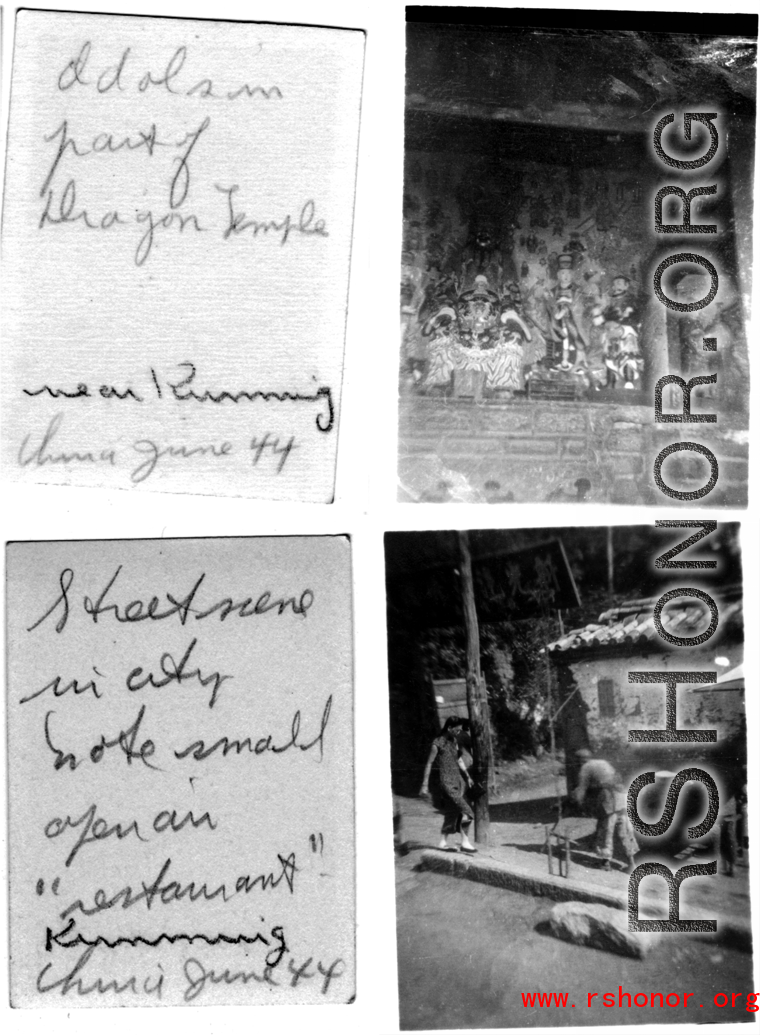 Idols in
part of
Dragon Temple
near Kunming
China June 44
Street scene
in city
note small
open air
"restaurant"
Kunming
China June 44
RSHONOR.ORG
www.rshonor.org